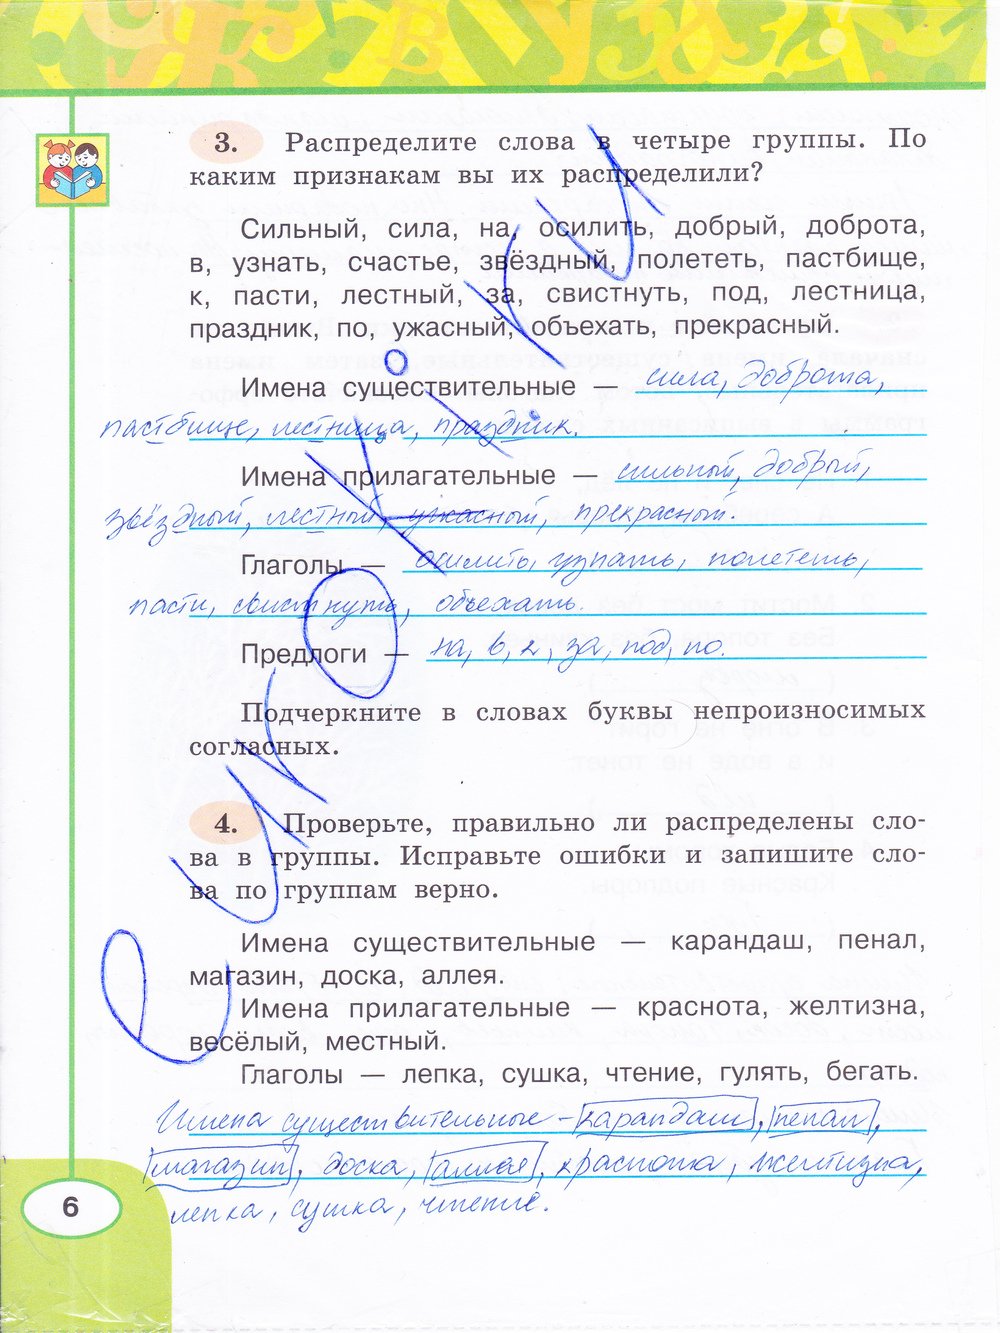 3. Распределите слова в четыре группы. По
каким признакам вы их распределили?
Сильный, сила, на, осилить, добрый, доброта,
в, узнать, счастье, звёздный, полететь, пастбище,
к, пасти, лестный, за, свистнуть, под, лестница,
праздник, по, ужасный, объехать, прекрасный.
Имена существительные — сила, доброта,
пастбище, лестница, праздник.
Имена прилагательные — сильный, добрый,
звёздный, лестный, ужасный, прекрасный.
Глаголы — осилить, узнать, полететь,
пасти, свистнуть, объехать.
Предлоги — на, в, к, за, под, по.
Подчеркните в словах буквы непроизносимых
согласных.
4. Проверьте, правильно ли распределены сло-
ва в группы. Исправьте ошибки и запишите сло-
ва по группам верно.
Имена существительные — карандаш, пенал,
магазин, доска, аллея.
Имена прилагательные — краснота, желтизна,
весёлый, местный.
Глаголы — лепка, сушка, чтение, гулять, бегать.
Имена существительные - карандаш, пенал,
магазин, доска, аллея, краснота, желтизна,
лепка, сушка, чтение.
6
euroki.ru